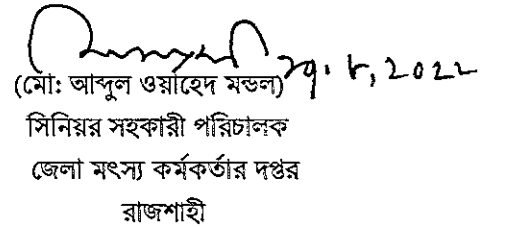 ২৭.৮,২০২২
(মো: আব্দুল ওয়াহেদ মন্ডল)
সিনিয়র সহকারী পরিচালক
জেলা মৎস্য কর্মকর্তার দপ্তর
রাজশাহী